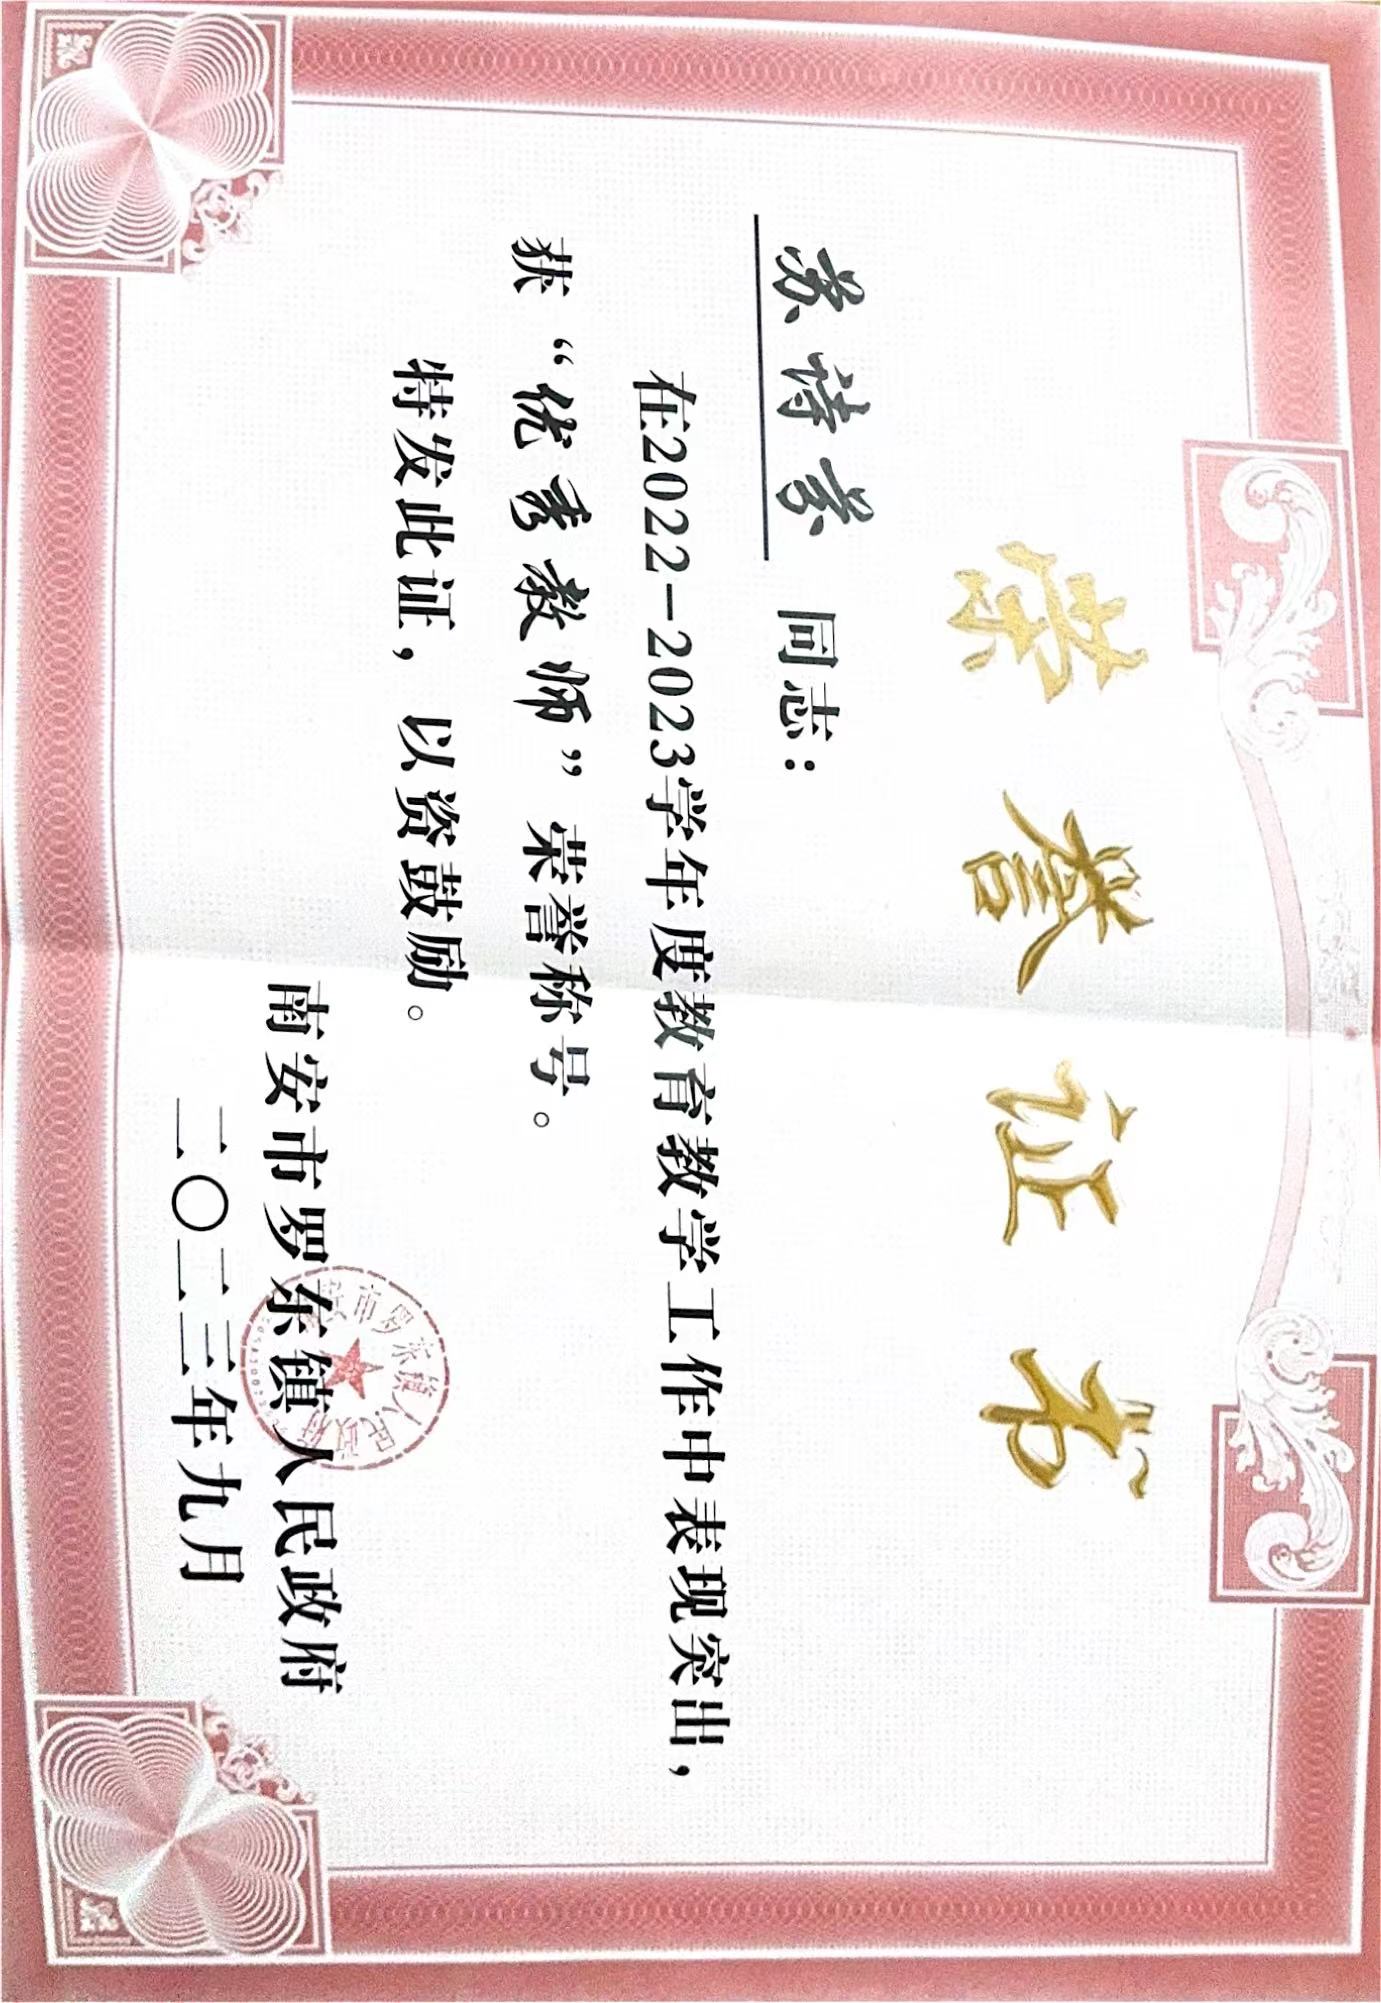 荣誉证书
苏诗崇 同志：
在2022-2023学年度教育教学工作中表现突出，
获“优秀教师”荣誉称号。
特发此证，以资鼓励。
南安市罗东镇人民政府
二〇二三年九月